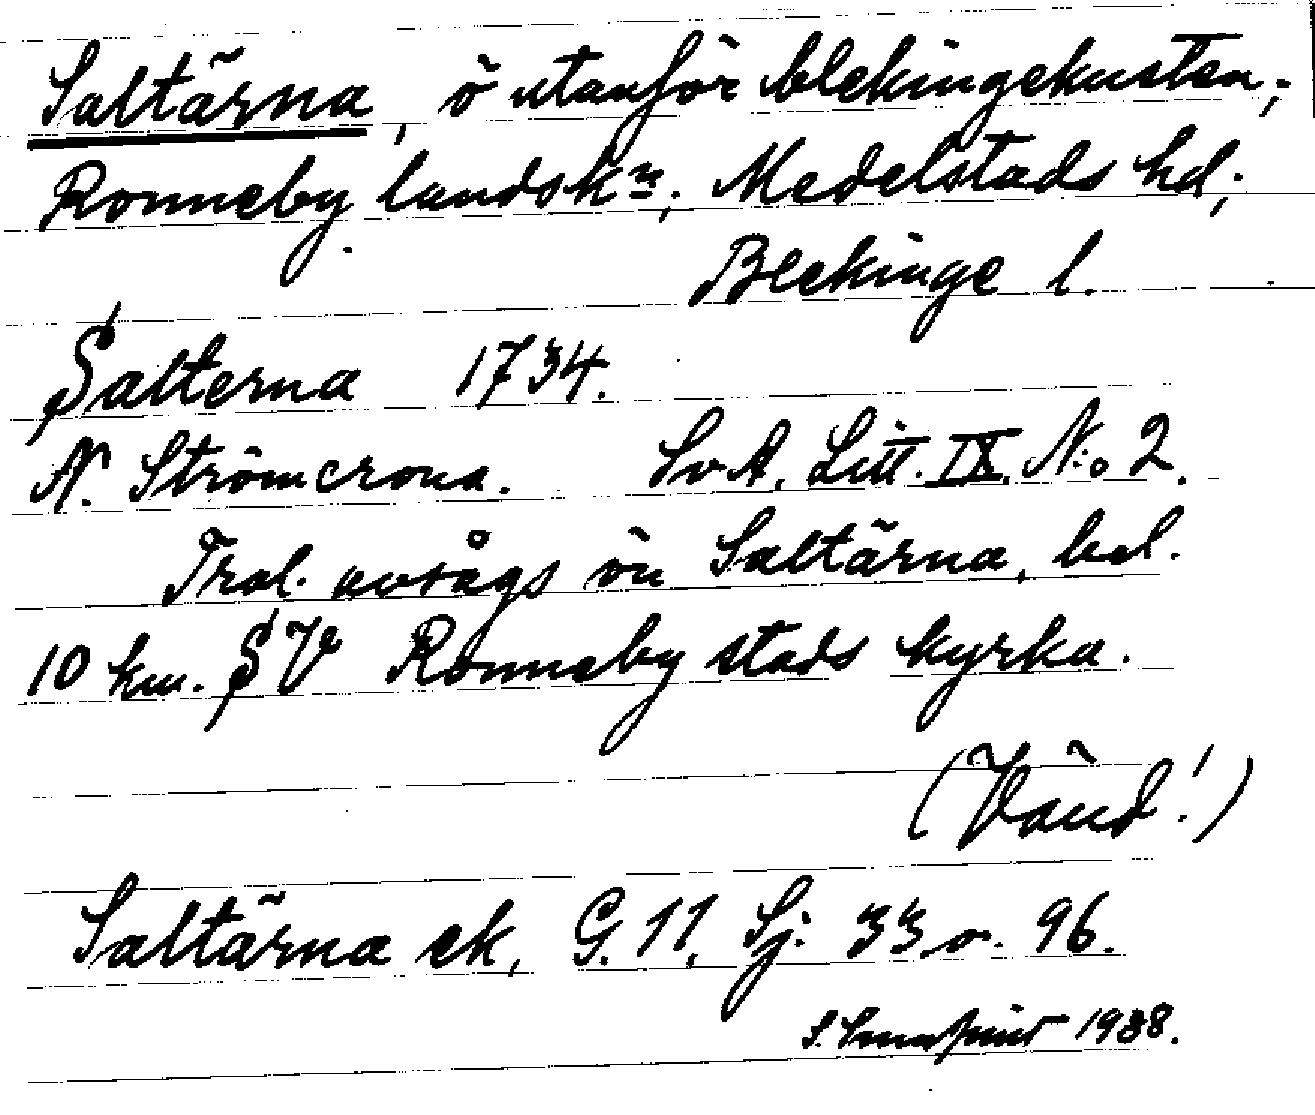 Saltärna, ö utanför blekingekusten;
Ronneby landskn; Medelstads hd;
Blekinge l.
Salterna 1734.
N. Strömcrona. SvA. Litt. IX. N:o 2.
Trol. avsågs ön Saltärna, bel.
10 km. SV Ronneby stads kyrka.
(Vänd!)
Saltärna ek, G. 11, Sj. 33 o. 96.
S. 1938.